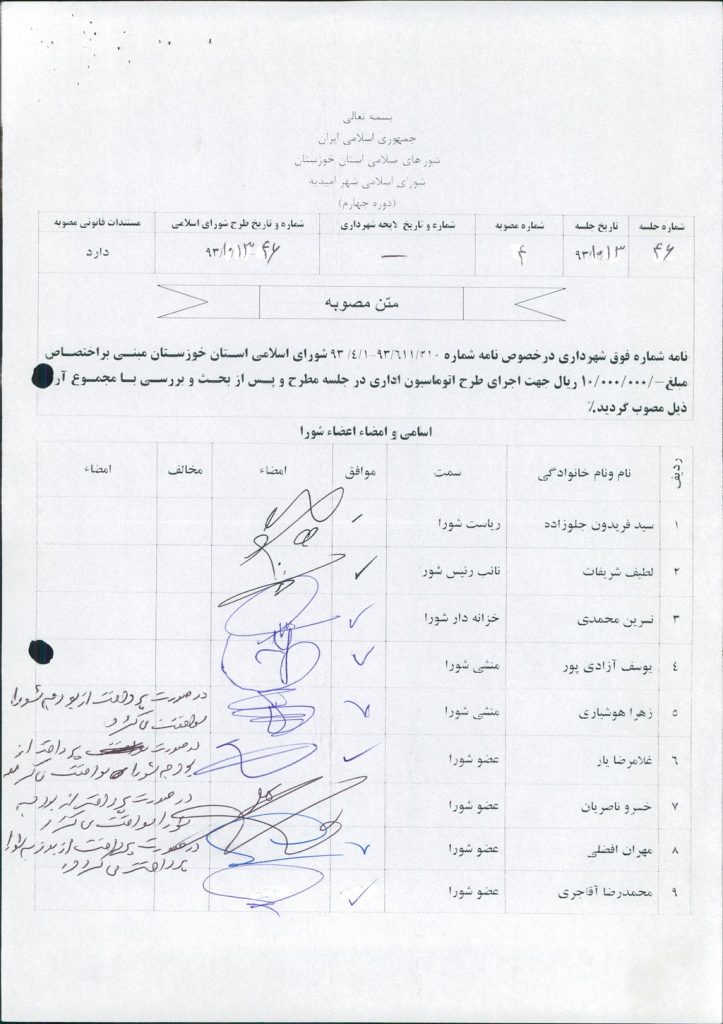 بسمه تعالی
جمهوری اسلامی ایران
شورهای سلامی استان خوزستان
شورای اسلامی شهر امیدیه
(دوره چهارم)
شماره جلسه تاریخ جلسه شماره مصوبه شماره و تاریخ لایحه شهرداری شماره و تاریخ طرح شورای اسلامی مستندات قانونی مصوبه
۴۶ ۴ — دارد
متن مصوبه
نامه شماره فوق شهرداری درخصوص نامه شماره ۹۳/۶۱۱/۲۱۰-۹۳/۴/۱ شورای اسلامی استان خوزستان مبنی براختصاص
مبلغ -/۱۰/۰۰۰/۰۰۰ ریال جهت اجرای طرح اتوماسیون اداری در جلسه مطرح و پس از بحث و بررسی با مجموع آر
ذیل مصوب گردید.٪
اسامی و امضاء اعضاء شورا
ردیف نام ونام خانوادگی سمت موافق امضاء مخالف امضاء
۱ سید فریدون جلوزاده ریاست شورا
۲ لطیف شریفات نائب رئیس شور
۳ نسرین محمدی خزانه دار شورا
۴ یوسف آزادی پور منشی شورا
۵ زهرا هوشیاری منشی شورا
در صورت پرداخت از بودجه شورا
موافقت می گردد
۶ غلامرضا یار عضو شورا
در صورت پرداخت از
بودجه شورا موافقت می گردد
۷ خسرو ناصریان عضو شورا
در صورت پرداخت از بودجه
شورا موافقت می گردد
۸ مهران افضلی عضو شورا
در صورت پرداخت از بودجه شورا
پرداخت می گردد
۹ محمدرضا آقاجری عضو شورا